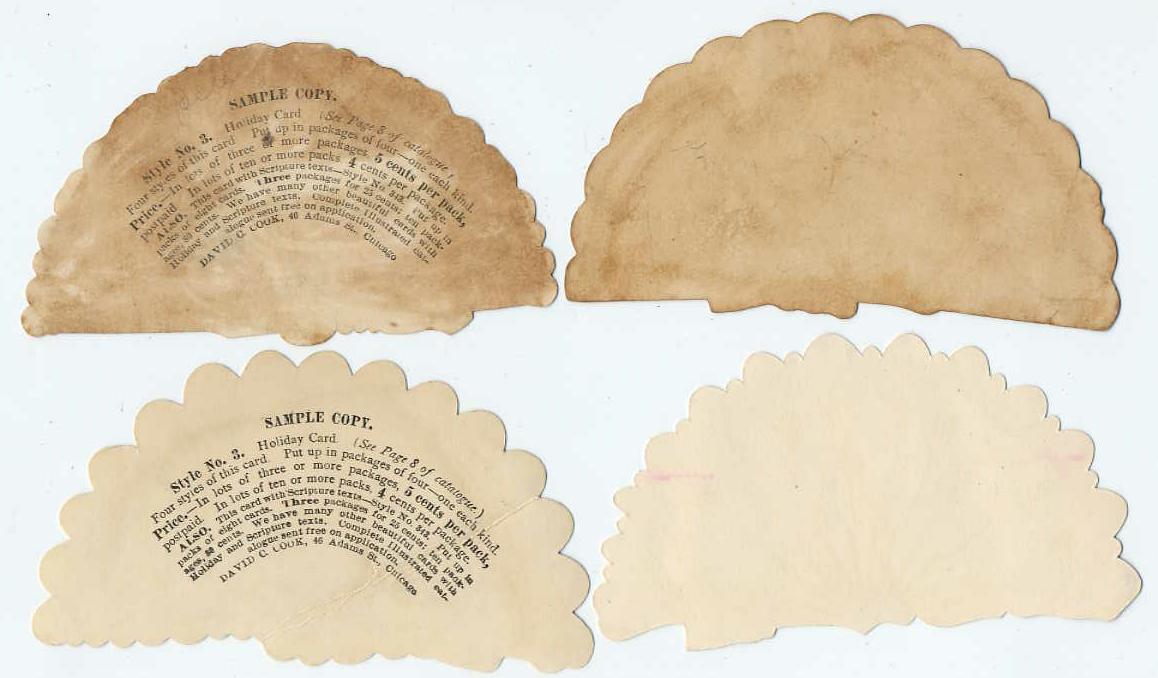 SAMPLE COPY.
Style No. 3. Holiday Card (See Page 8 of catalogue.)
Four styles of this card Put up in packages of four—one each kind.
Price.—In lots of three or more packages, 5 cents per pack,
postpaid In lots of ten or more packs 4 cents per package.
ALSO. This card with Scripture texts—Style No. 313. Put up in
packs of eight cards. Three packages for 25 cents; ten pack-
ages, 80 cents. We have many other beautiful cards with
Holiday and Scripture texts. Complete illustrated cat-
alogue sent free on application.
DAVID C. COOK, 46 Adams St., Chicago
SAMPLE COPY.
Style No. 3. Holiday Card (See Page 8 of catalogue.)
Four styles of this card Put up in packages of four—one each kind.
Price.—In lots of three or more packages, 5 cents per pack,
postpaid. In lots of ten or more packs, 4 cents per package.
ALSO. This card with Scripture texts—Style No. 313. Put up in
packs of eight cards. Three packages for 25 cents; ten pack-
ages, 80 cents. We have many other beautiful cards with
Holiday and Scripture texts. Complete illustrated cat-
alogue sent free on application.
DAVID C. COOK, 46 Adams St., Chicago